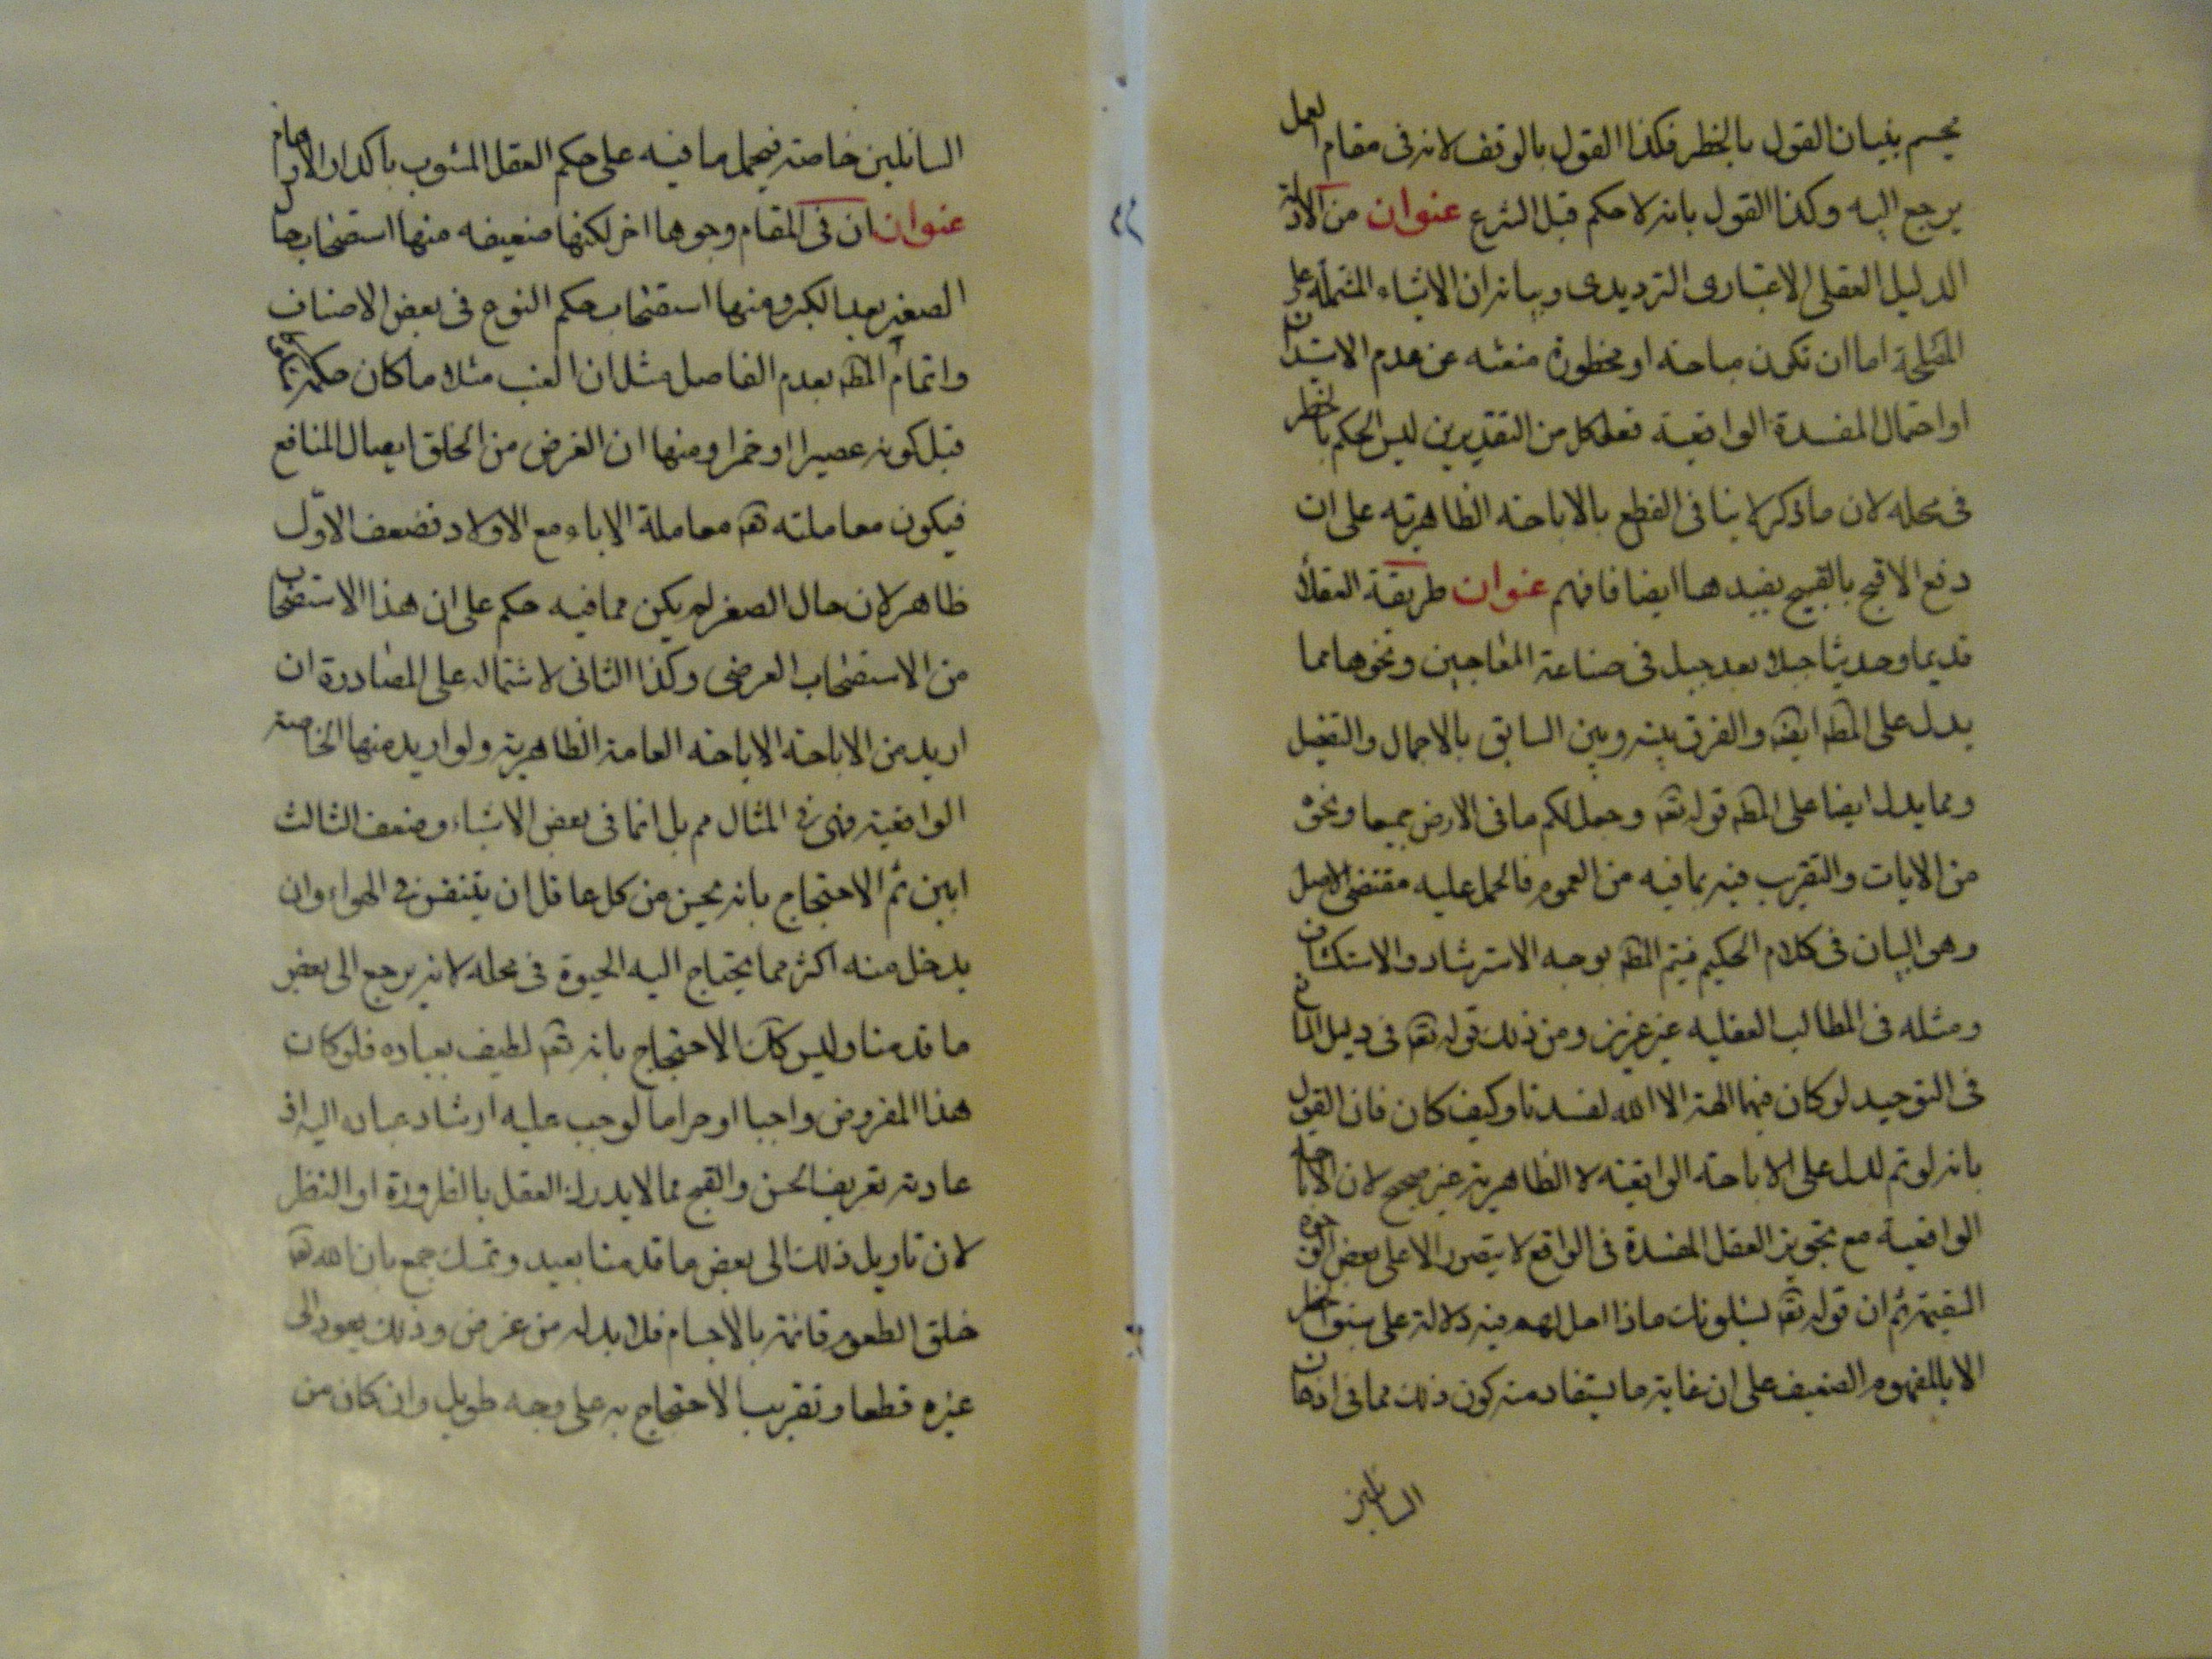 يحسم بنيان القول بالخطر فكذا القول بالوقف لانه فى مقام العمل
يرجع اليه وكذا القول بانه لا حكم قبل الشرع عنوان من الادلة
الدليل العقلى الاعتبارى الترديدى وبيانه ان الاشياء المشتملة على
المصلحة اما ان تكون مباحة او محظورة منعته عن عدم الاستيذان
او احتمال المفسدة الواقعية فعلى كل من التقديرين ليس الحكم بالخطر
فى محله لان ما ذكر لا ينافى القطع بالاباحة الظاهرية على ان
دفع الاقبح بالقبيح يفيدها ايضا فافهم عنوان طريقة العقلاء
قديما وحديثا جيلا بعد جيل فى صناعة المعاجين ونحوها مما
يدل على المط ايض والفرق بينه وبين السابق بالاجمال والتفصيل
ومما يدل ايضا على المط قوله تع وجعل لكم ما فى الارض جميعا ونحوه
من الايات والتقريب فيه بما فيه من العموم فالحمل عليه مقتضى الاصل
وهو البيان فى كلام الحكيم فيتم المط بوجه الاسترشاد والاستكشاف
ومثله فى المطالب العقلية غير عزيز ومن ذلك قوله تع فى دليل التمانع
فى التوحيد لو كان فيهما الهة الا الله لفسدتا وكيف كان فان القول
بانه لو تم لدل على الاباحة الواقعية لا الظاهرية غير صحيح لان الاباحة
الواقعية مع تجويز العقل المفسدة فى الواقع لا يتصور الا على بعض الوجوه
السقيمة ثم ان قوله تع يسئلونك ماذا احل لهم فيه دلالة على سبق الخطر
الا بالمفهوم الضعيف على ان غاية ما يستفاد منه كون ذلك مما فى اذهان
السائلين
السائلين خاصة فيحمل ما فيه على حكم العقل المشوب باكدار الاوهام
عنوان ان فى المقام وجوها اخر لكنها ضعيفه منها استصحاب حال
الصغير بعد الكبر ومنها استصحاب حكم النوع فى بعض الاصناف
واتمام المط بعدم الفاصل مثل ان العنب مثلا ما كان حكمه
قبل كونه عصيرا او خمرا ومنها ان الغرض من الخلق ايصال المنافع
فيكون معاملته تع معاملة الاباء مع الاولاد فضعف الاوّل
ظاهر لان حال الصغر لم يكن مما فيه حكم على ان هذا الاستصحاب
من الاستصحاب العرضى وكذا الثانى لاشتماله على المصادرة ان
اريد من الاباحة الاباحة العامة الظاهرية ولو اريد منها الخاصة
الواقعية فهى فى المثال مم بل انما فى بعض الاشياء وضعف الثالث
ابين ثم الاحتجاج بانه يحسن من كل عاقل ان يتنفس فى الهواء وان
يدخل منه اكثر مما يحتاج اليه الحيوة فى محله لانه يرجع الى بعض
ما قدمنا وليس كك الاحتجاج بانه تع لطيف بعباده فلو كان
هذا المفروض واجبا او حراما لوجب عليه ارشاد عباده اليه اذ
عادته تعريف الحسن والقبح مما لا يدرك العقل بالضرورة او النظر
لان تاويل ذلك الى بعض ما قدمنا بعيد وتمسك جمع بان الله تع
خلق الطعوم قائمة بالاجسام فلا بد له من غرض وذلك يعود الى
غيره قطعا وتقريب الاحتجاج به على وجه طويل وان كان من